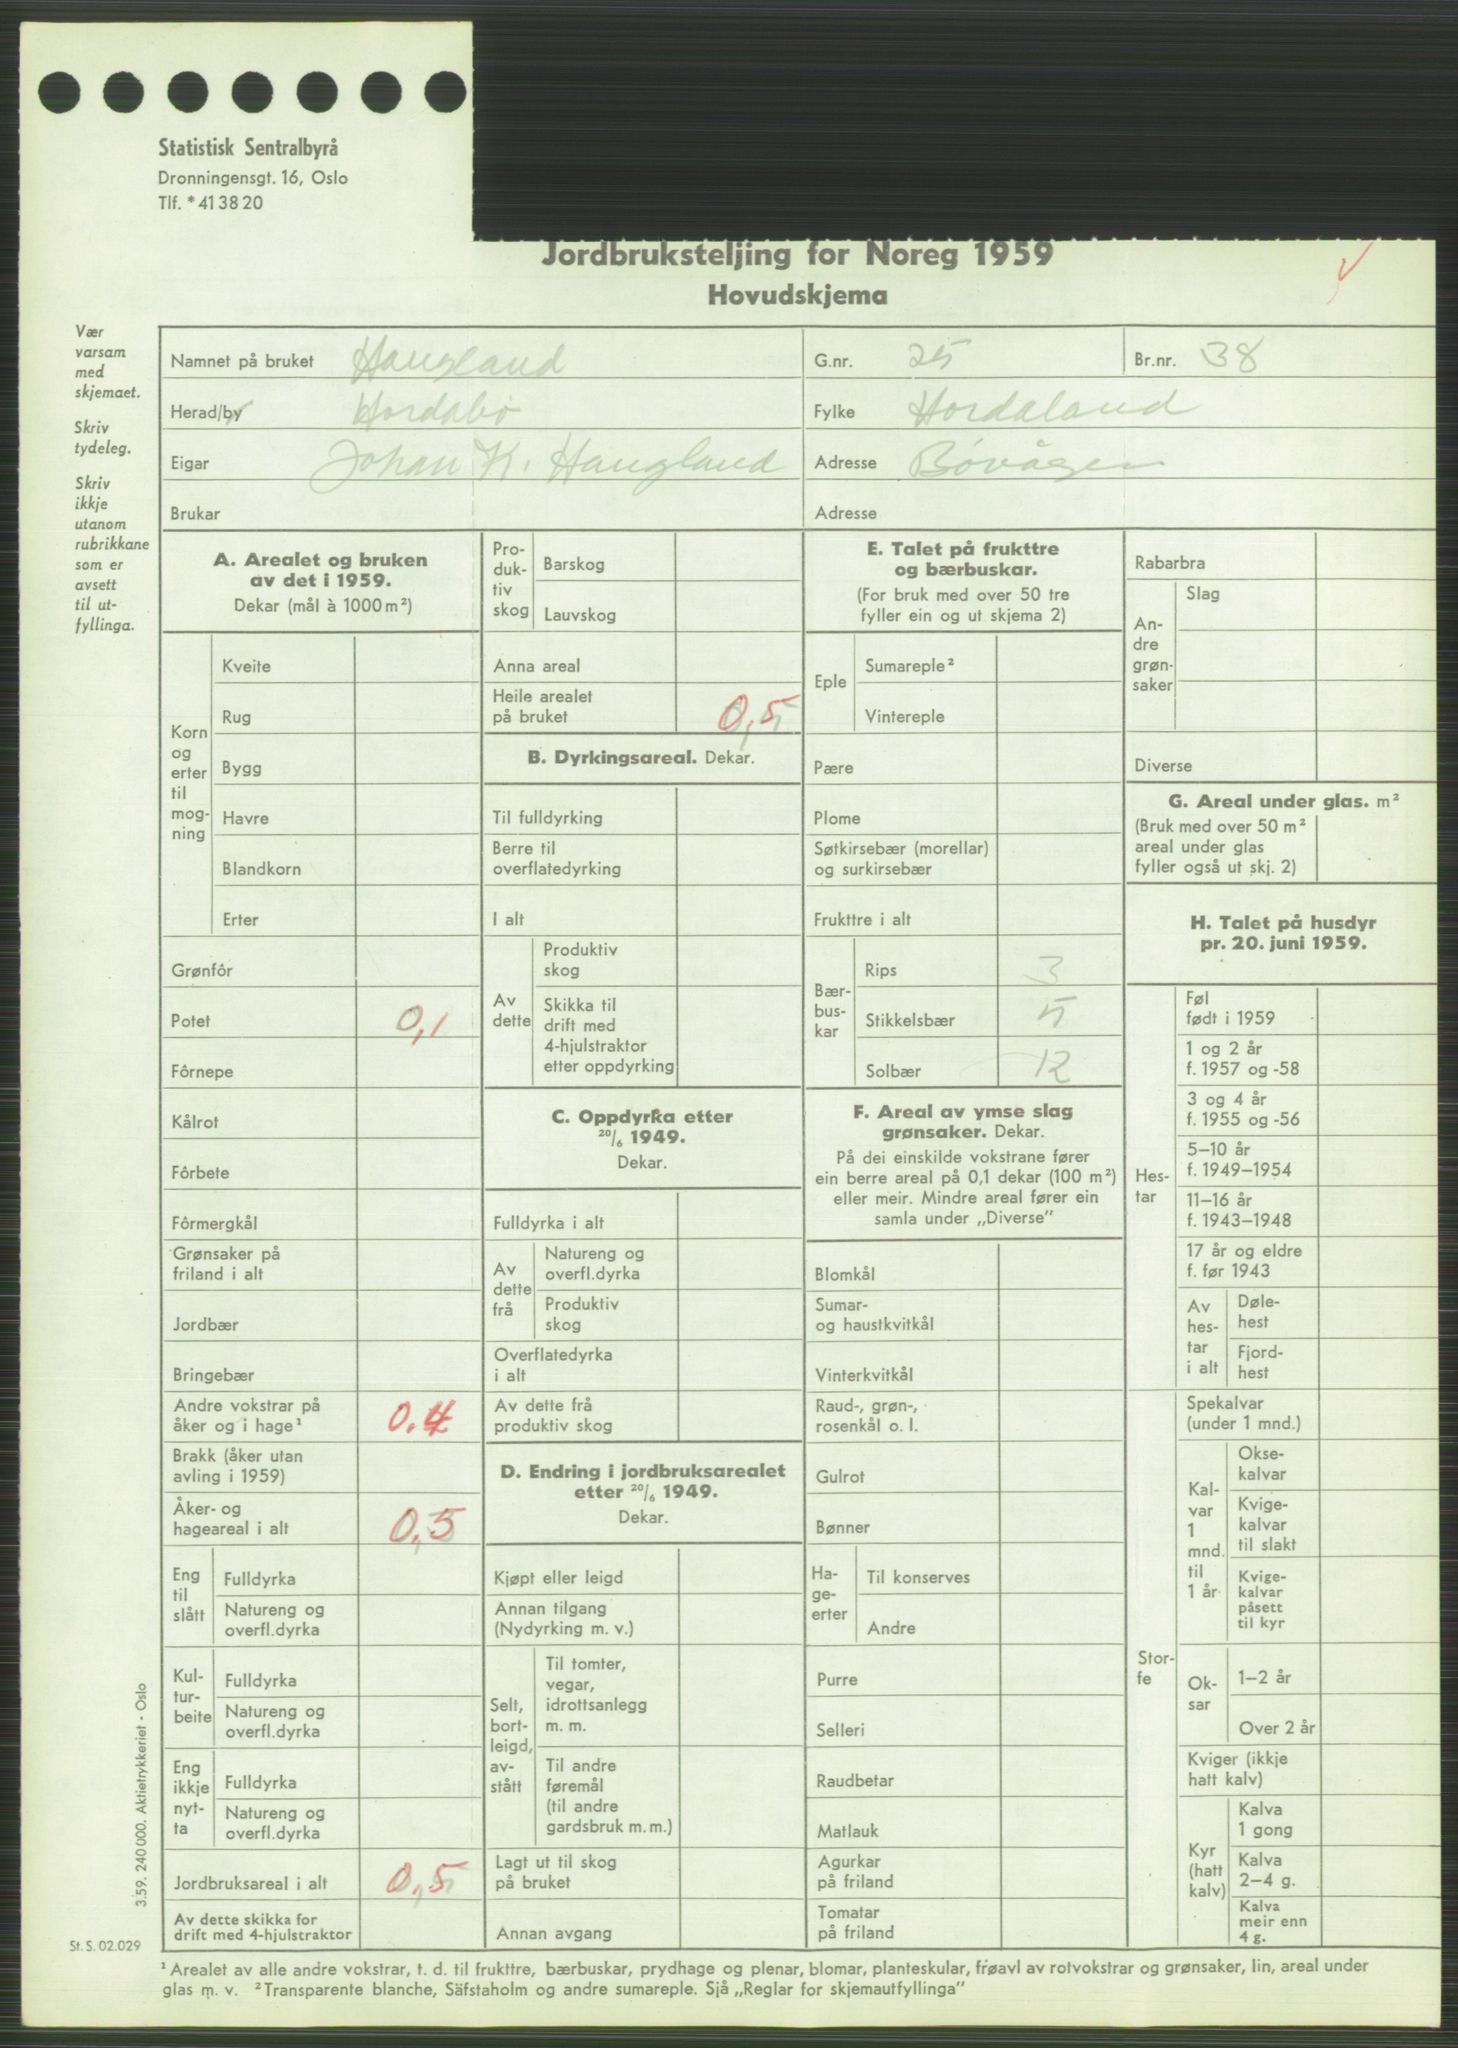 Statistisk Sentralbyrå
Dronningensgt. 16, Oslo
Tlf. * 41 38 20
Jordbruksteljing for Noreg 1959
Hovudskjema
Vær
varsam
med
skjemaet.
Skriv
tydeleg.
Skriv
ikkje
utanom
rubrikkane
som er
avsett
til ut-
fyllinga.
Namnet på bruket Haugland
G.nr. 25
Br.nr. 38
Herad/by Hordabø
Fylke Hordaland
Eigar Johan K. Haugland
Adresse Bøvågen
Brukar
Adresse
A. Arealet og bruken
av det i 1959.
Dekar (mål à 1000 m²)
Korn
og
erter
til
mog-
ning
Kveite
Rug
Bygg
Havre
Blandkorn
Erter
Grønfôr
Potet 0,1
Fôrnepe
Kålrot
Fôrbete
Fôrmergkål
Grønsaker på
friland i alt
Jordbær
Bringebær
Andre vokstrar på
åker og i hage¹ 0.4
Brakk (åker utan
avling i 1959)
Åker- og
hageareal i alt 0,5
Eng
til
slått
Fulldyrka
Natureng og
overfl.dyrka
Kul-
tur-
beite
Fulldyrka
Natureng og
overfl.dyrka
Eng
ikkje
nyt-
ta
Fulldyrka
Natureng og
overfl.dyrka
Jordbruksareal i alt 0,5
Av dette skikka for
drift med 4-hjulstraktor
Pro-
duk-
tiv
skog
Barskog
Lauvskog
Anna areal
Heile arealet
på bruket 0,5
B. Dyrkingsareal. Dekar.
Til fulldyrking
Berre til
overflatedyrking
I alt
Av
dette
Produktiv
skog
Skikka til
drift med
4-hjulstraktor
etter oppdyrking
C. Oppdyrka etter
20/6 1949.
Dekar.
Fulldyrka i alt
Av
dette
frå
Natureng og
overfl.dyrka
Produktiv
skog
Overflatedyrka
i alt
Av dette frå
produktiv skog
D. Endring i jordbruksarealet
etter 20/6 1949.
Dekar.
Kjøpt eller leigd
Annan tilgang
(Nydyrking m. v.)
Selt,
bort-
leigd,
av-
stått
Til tomter,
vegar,
idrottsanlegg
m. m.
Til andre
føremål
(til andre
gardsbruk m. m.)
Lagt ut til skog
på bruket
Annan avgang
E. Talet på frukttre
og bærbuskar.
(For bruk med over 50 tre
fyller ein og ut skjema 2)
Eple
Sumareple²
Vintereple
Pære
Plome
Søtkirsebær (morellar)
og surkirsebær
Frukttre i alt
Bær-
bus-
kar
Rips 3
Stikkelsbær 5
Solbær 12
F. Areal av ymse slag
grønsaker. Dekar.
På dei einskilde vokstrane fører
ein berre areal på 0,1 dekar (100 m²)
eller meir. Mindre areal fører ein
samla under „Diverse”
Blomkål
Sumar-
og haustkvitkål
Vinterkvitkål
Raud-, grøn-,
rosenkål o. l.
Gulrot
Bønner
Ha-
ge-
erter
Til konserves
Andre
Purre
Selleri
Raudbetar
Matlauk
Agurkar
på friland
Tomatar
på friland
Rabarbra
An-
dre
grøn-
saker
Slag
Diverse
G. Areal under glas. m²
(Bruk med over 50 m²
areal under glas
fyller også ut skj. 2)
H. Talet på husdyr
pr. 20. juni 1959.
Hes-
tar
Føl
født i 1959
1 og 2 år
f. 1957 og -58
3 og 4 år
f. 1955 og -56
5–10 år
f. 1949–1954
11–16 år
f. 1943–1948
17 år og eldre
f. før 1943
Av
hes-
tar
i alt
Døle-
hest
Fjord-
hest
Stor-
fe
Spekalvar
(under 1 mnd.)
Kal-
var
1
mnd.
til
1 år
Okse-
kalvar
Kvige-
kalvar
til slakt
Kvige-
kalvar
påsett
til kyr
Ok-
sar
1–2 år
Over 2 år
Kviger (ikkje
hatt kalv)
Kyr
(hatt
kalv)
Kalva
1 gong
Kalva
2–4 g.
Kalva
meir enn
4 g.
3.59. 240 000. Aktietrykkeriet - Oslo
St. S. 02.029
¹ Arealet av alle andre vokstrar, t. d. til frukttre, bærbuskar, prydhage og plenar, blomar, planteskular, frøavl av rotvokstrar og grønsaker, lin, areal under
glas m. v. ² Transparente blanche, Säfstaholm og andre sumareple. Sjå „Reglar for skjemautfyllinga”